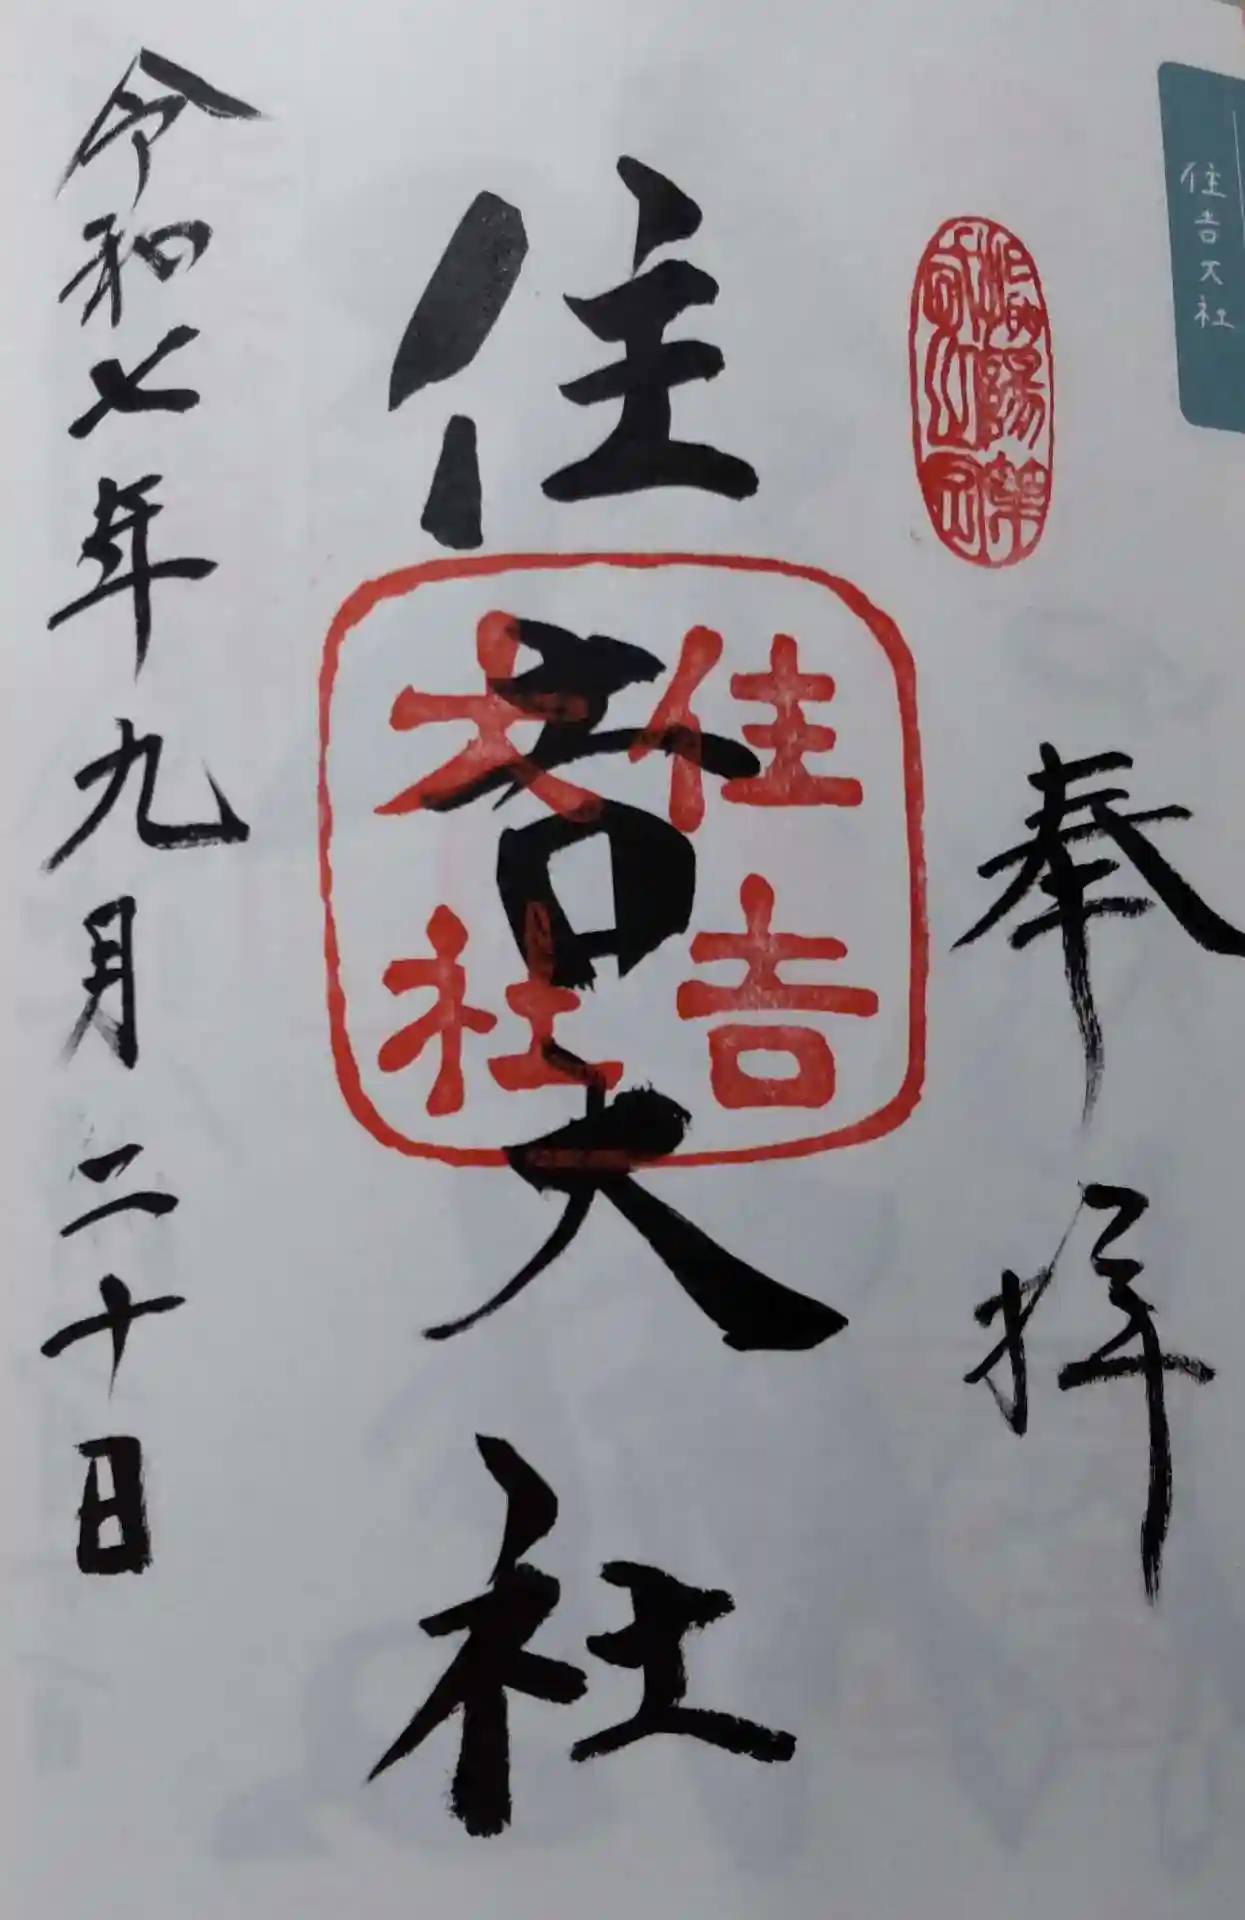 住吉大社
奉拝
住吉大社
住吉
大社
令和七年九月二十日